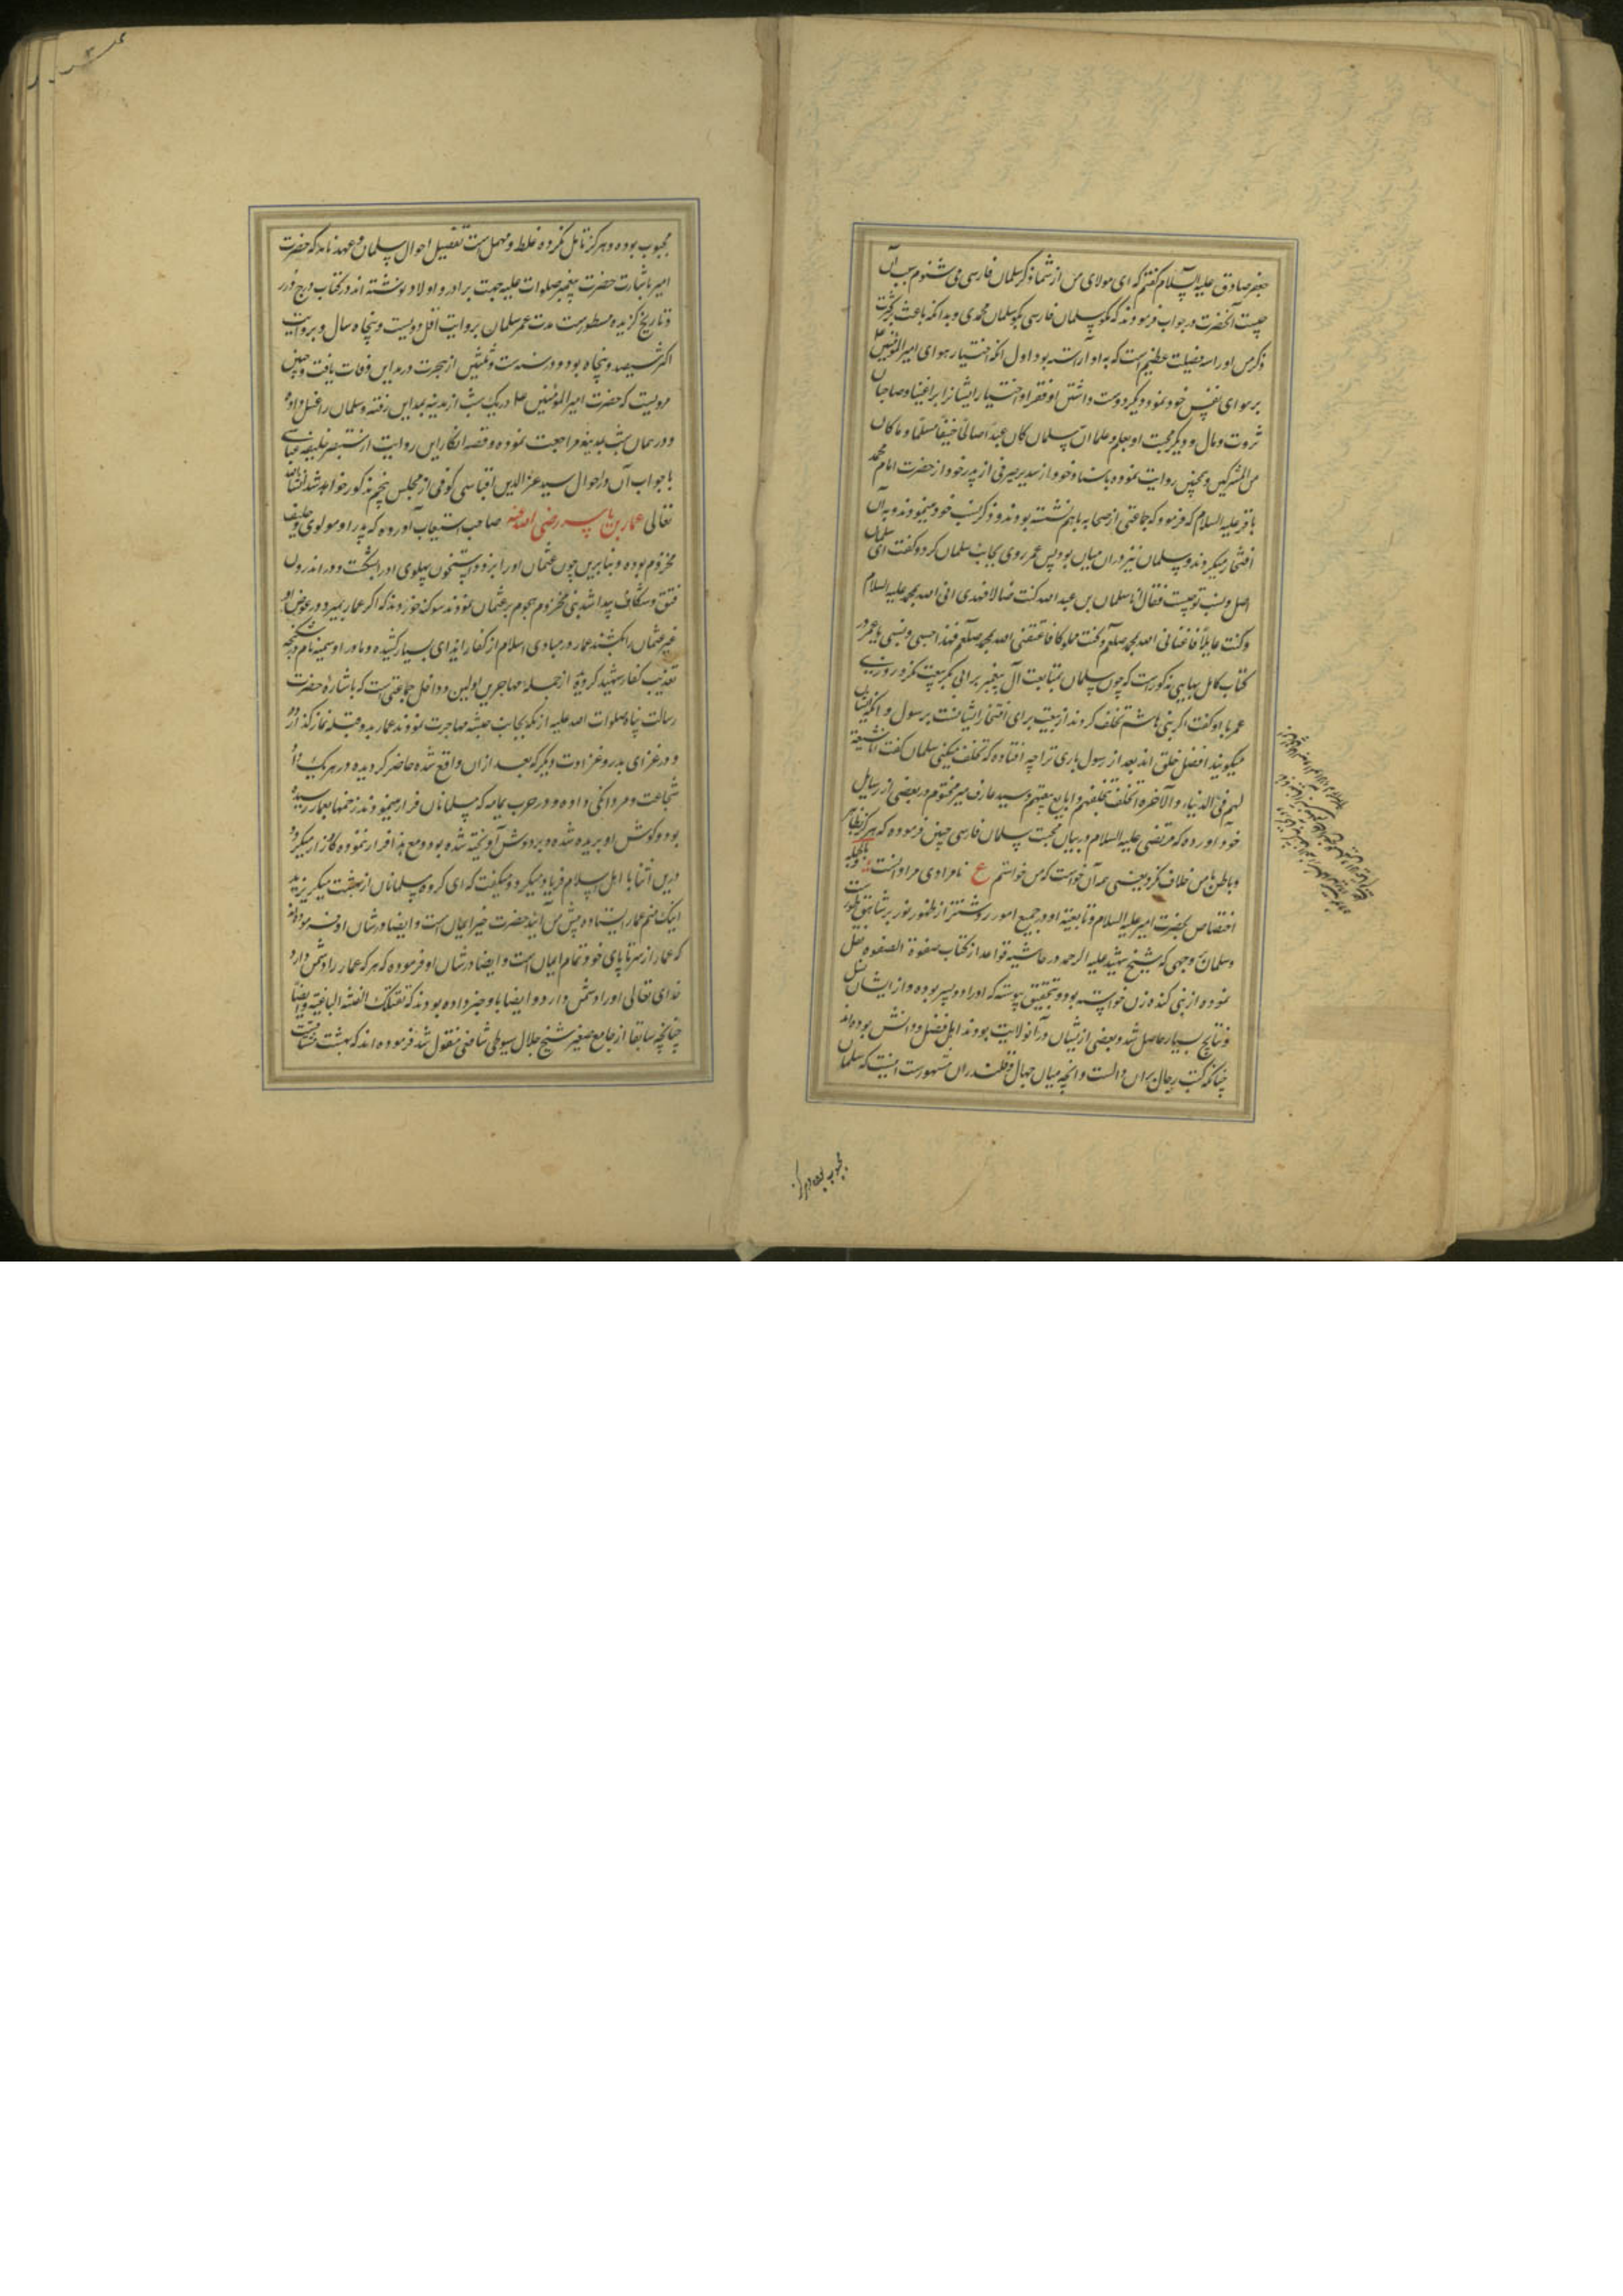 جعفر صادق علیه السلام گفتم که ای مولای من از شما ذکر سلمان فارسی می شنوم سبب آن
چیست آنحضرت در جواب فرمودند که مگو سلمان فارسی بگو سلمان محمدی و بدانکه باعث بر کثرت
ذکر من او را سه فضیلت عظیم است که به او آراسته بود اول آنکه اختیار هوای امیر المؤمنین علی
بر هوای نفس خود نمود و دیگر دوست داشتن او فقرا و اختیار ایشانرا بر اغنیا و صاحبان
ثروت و مال و دیگر محبت او بعلم و علما ان سلمان کان عبدا صالحا حنیفا مسلما و ما کان
من المشرکین و همچنین روایت نموده باسناد خود از سدیر صیرفی از پدر خود از حضرت امام محمد
باقر علیه السلام که فرمود که جماعتی از صحابه با هم نشسته بودند و ذکر نسب خود مینمودند و به آن
افتخار میکردند و سلمان نیز در ان میان بود پس عمر روی بجانب سلمان کرد و گفت ای سلمان
اصل و نسب تو چیست فقال انا سلمان بن عبد الله کنت ضالا فهدی انی الله بمحمد علیه السلام
و کنت عایلا فاغنانی الله بمحمد صلعم و کنت مملوکا فاعتقنی الله بمحمد صلعم فهذا حسبی و نسبی یا عمر و در
کتاب کامل بهایی مذکور است که چون سلمان بمتابعت آل پیغمبر بر ابی بکر بیعت نکرد روزی
عمر با او گفت اگر بنی هاشم تخلف کردند از بیعت برای افتخار ایشانست برسول و آنکه ایشان
میگویند افضل خلق اند بعد از رسول باری ترا چه افتاده که تخلف میکنی سلمان گفت انا شیعة
لهم فی الدنیا و الآخرة اتخلف بتخلفهم و ابایع ببیعتهم و سید عارف میر مختوم در بعضی از رسایل
خود آورده که مرتضی علیه السلام در بیان محبت سلمان فارسی چنین فرموده که هرگز بظاهر
و باطن با من خلاف نکرد یعنی همه آن خواست که من خواستم ع نامرادی مراد اوست و بالجمله
اختصاص بحضرت امیر علیه السلام و تابعیت او در جمیع امور روشنتر از ظهور نور بر شاهق طور است
و سلمان بوجهی که شیخ شهید علیه الرحمه در حاشیه قواعد از کتاب صفوة الصفوه نقل
نموده از بنی کنده زن خواسته بود و بتحقیق پیوسته که او را دو پسر بوده و از ایشان نسل
و نتایج بسیار حاصل شد و بعضی از ایشان در آنولایت بودند اهل فضل و دانش بوده اند
چنانکه کتب رجال بران دالست و انچه میان جهال و قلندران مشهور است اینست که سلمان
محبوب بوده و هرگز
محبوب بوده و هرگز تاهل نکرده غلط و مهمل است تفصیل احوال سلمان و عهد نامه که حضرت
امیر باشارت حضرت پیغمبر صلوات علیه جهت برادر و اولاد او نوشته اند در کتاب درج درر
و تاریخ گزیده مسطور است مدت عمر سلمان بروایت اقل دویست و پنجاه سال و بروایت
اکثر سیصد و پنجاه بود و در سنه ست و ثلثین از هجرت در مداین وفات یافت و چنین
مرویست که حضرت امیر المؤمنین علی در یک شب از مدینه بمداین رفته و سلمان را غسل داده
و در همان شب بمدینه مراجعت نموده و قصه انکار این روایت از مستنصر خلیفه عباسی
با جواب آن در احوال سید عز الدین اقباسی کوفی از مجلس پنجم مذکور خواهد شد انشاالله
تعالی عمار بن یاسر رضی الله عنه صاحب استیعاب آورده که پدر او مولوی و حلیف
مخزوم بوده و بنابرین چون عثمان او را بزد و استخوان پهلوی او را بشکست و در اندرون
فتق و شکاف پیدا شد بنی مخزوم هجوم بر عثمان نمودند سوگند خوردند که اگر عمار بمیرد در عوض او
غیر عثمان را نکشند عمار در مبادی اسلام از کفار ایذای بسیار کشیده و مادر او سمیه نام در شکنجه
تعذیب کفار شهید گردید از جمله مهاجرین اولین و داخل جماعتی است که باشارة حضرت
رسالت پناه صلوات الله علیه از مکه بجانب حبشه مهاجرت نمودند عمار بدو قبله نماز گذارده
و در غزای بدر و غزاوت دیگر که بعد از ان واقع شده حاضر گردیده و در هر یک داد
شجاعت و مردانگی داده و در حرب یمامه که مسلمانان فرار مینمودند زخمها بعمار رسیده
بود و گوش او بریده شده و بر دوش آویخته شده بود و مع هذا فرار ننموده کارزار میکرد
درین اثنا با اهل اسلام فریاد میکرد و میگفت که ای گروه مسلمانان از بهشت میگریزید
اینک منم عمار ایستاده پیش من آیید حضرت خیر ایمان است و ایضا در شان او فرموده اند
که عمار از سر تا پای خود تمام ایمان است و ایضا در شان او فرموده که هر که عمار را دشمن دارد
خدای تعالی او را دشمن دارد و ایضا باو خبر داده بودند که تقتلک الفئه الباغیة و ایضا
چنانچه سابقا از جامع صغیر شیخ جلال سیوطی شافعی منقول شد فرموده اند که بهشت مشتاقست